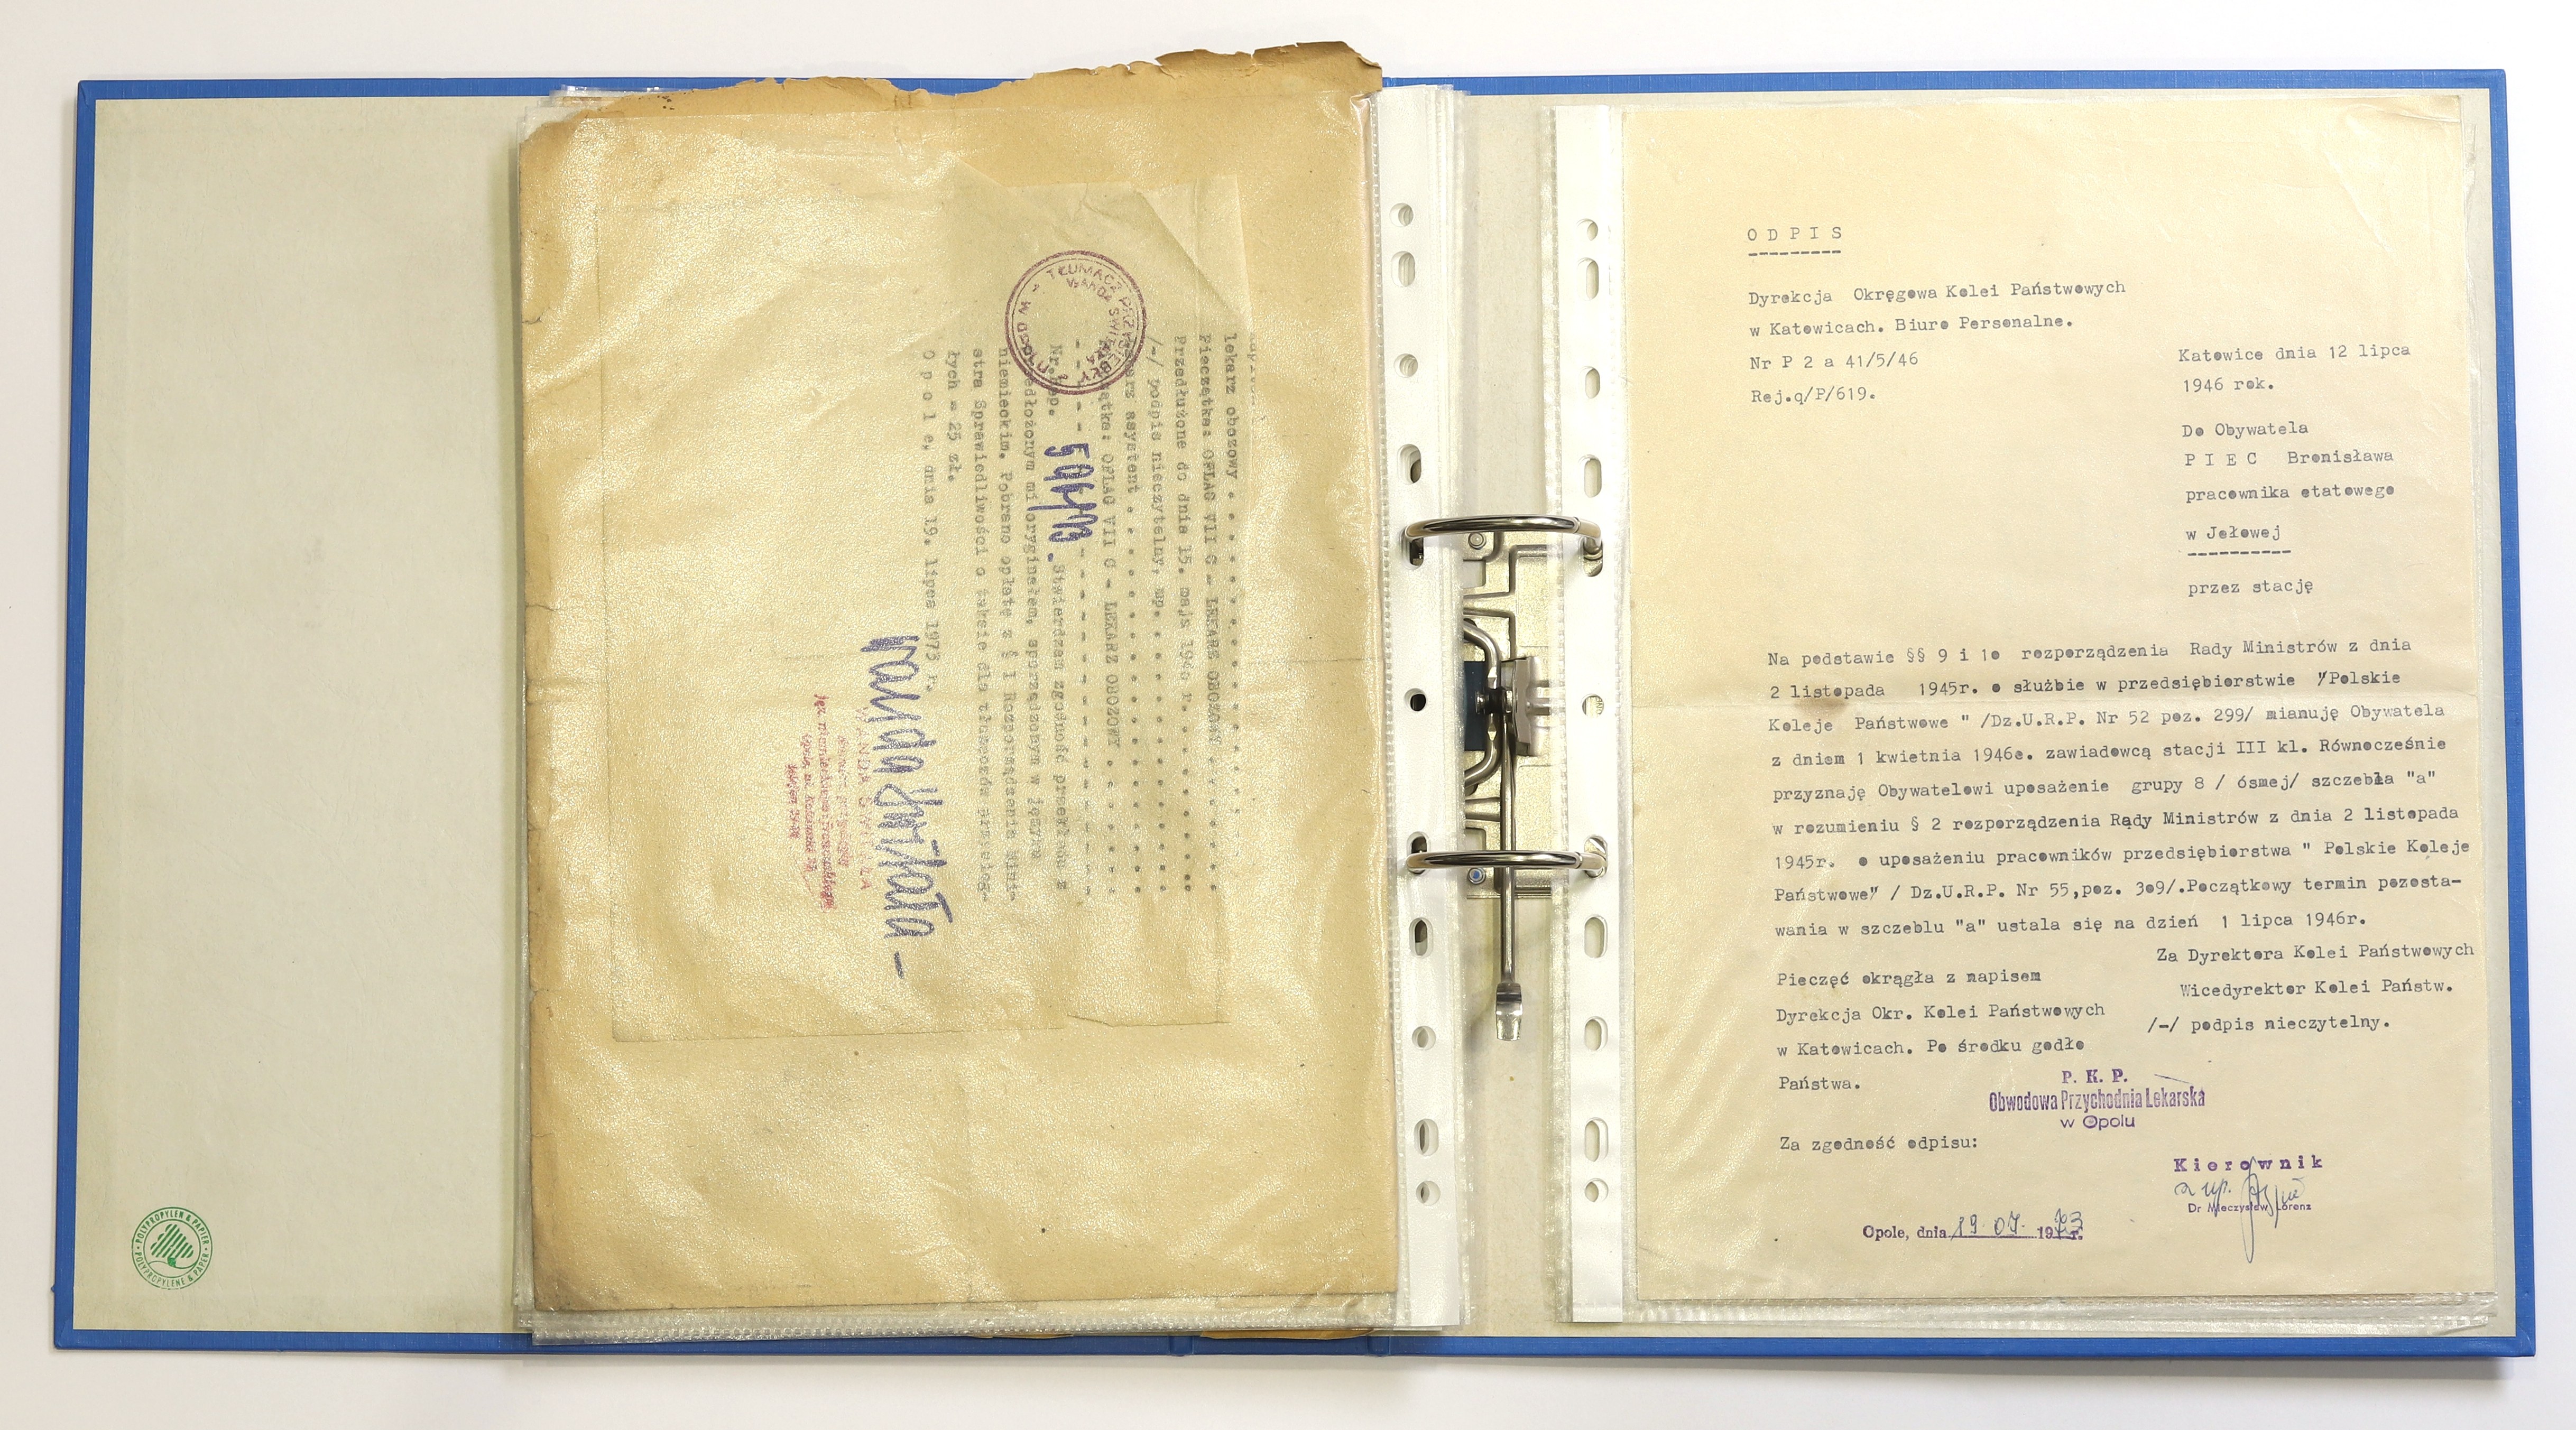 lekarz obozowy . . . . . . . . . . . . .
Pieczątka: OFLAG VII C - LEKARZ OBOZOWY . . . . . .
Przedłużone do dnia 15. maja 194 r. . . . . . . .
/-/ podpis nieczytelny, . . . . . . . .
lekarz asystent . . . . . . . . . . . .
Pieczątka: OFLAG VII C - LEKARZ OBOZOWY . . . . . .
- - - - - - - - - - - - - - -
Nr.Rep. Stwierdzam zgodność przekładu z
przedłożonym mi oryginałem, sporządzonym w języku
niemieckim. Pobrano opłatę z § 1 Rozporządzenia Mini-
stra Sprawiedliwości o taksie dla tłumaczów przysięg-
łych = 25 zł.
O p o l e, dnia 19. lipca 1973 r.
TŁUMACZ PRZYSIĘGŁY
WANDA
Wanda Świtała -
WANDA ŚWITAŁA
POLYPROPYLEN & PAPIER
POLYPROPYLENE & PAPER
O D P I S
Dyrekcja Okręgowa Kolei Państwowych
w Katowicach. Biuro Personalne.
Nr P 2 a 41/5/46
Rej.q/P/619.
Katowice dnia 12 lipca
1946 rok.
Do Obywatela
P I E C Bronisława
pracownika etatowego
w Jełowej
przez stację
Na podstawie §§ 9 i 1o rozporządzenia Rady Ministrów z dnia
2 listopada 1945r. o służbie w przedsiębiorstwie "Polskie
Koleje Państwowe " /Dz.U.R.P. Nr 52 poz. 299/ mianuję Obywatela
z dniem 1 kwietnia 1946o. zawiadowcą stacji III kl. Równocześnie
przyznaję Obywatelowi uposażenie grupy 8 / ósmej/ szczebla "a"
w rozumieniu § 2 rozporządzenia Rady Ministrów z dnia 2 listopada
1945r. o uposażeniu pracowników przedsiębiorstwa " Polskie Koleje
Państwowe" / Dz.U.R.P. Nr 55,poz. 3o9/.Początkowy termin pozosta-
wania w szczeblu "a" ustala się na dzień 1 lipca 1946r.
Za Dyrektora Kolei Państwowych
Wicedyrektor Kolei Państw.
/-/ podpis nieczytelny.
Pieczęć okrągła z napisem
Dyrekcja Okr. Kolei Państwowych
w Katowicach. Po środku godło
Państwa.
P. K. P.
Obwodowa Przychodnia Lekarska
w Opolu
Za zgodność odpisu:
Kierownik
z up.
Dr Mieczysław Lorenz
Opole, dnia 19.07. 1973 r.